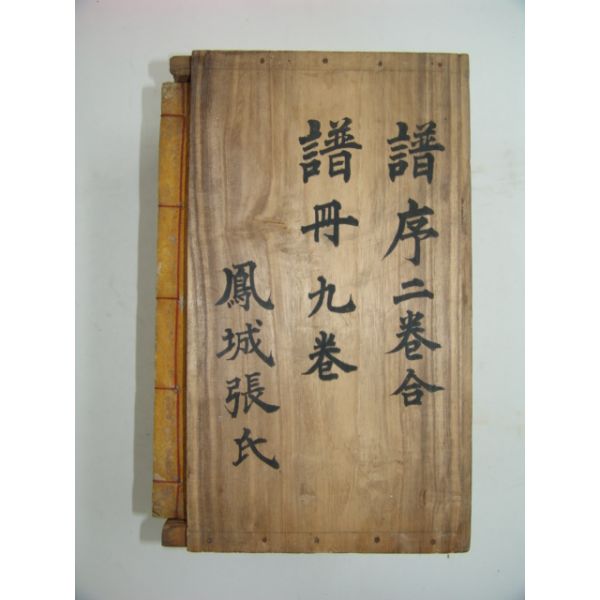 譜序二卷合
譜冊九卷
鳳城張氏